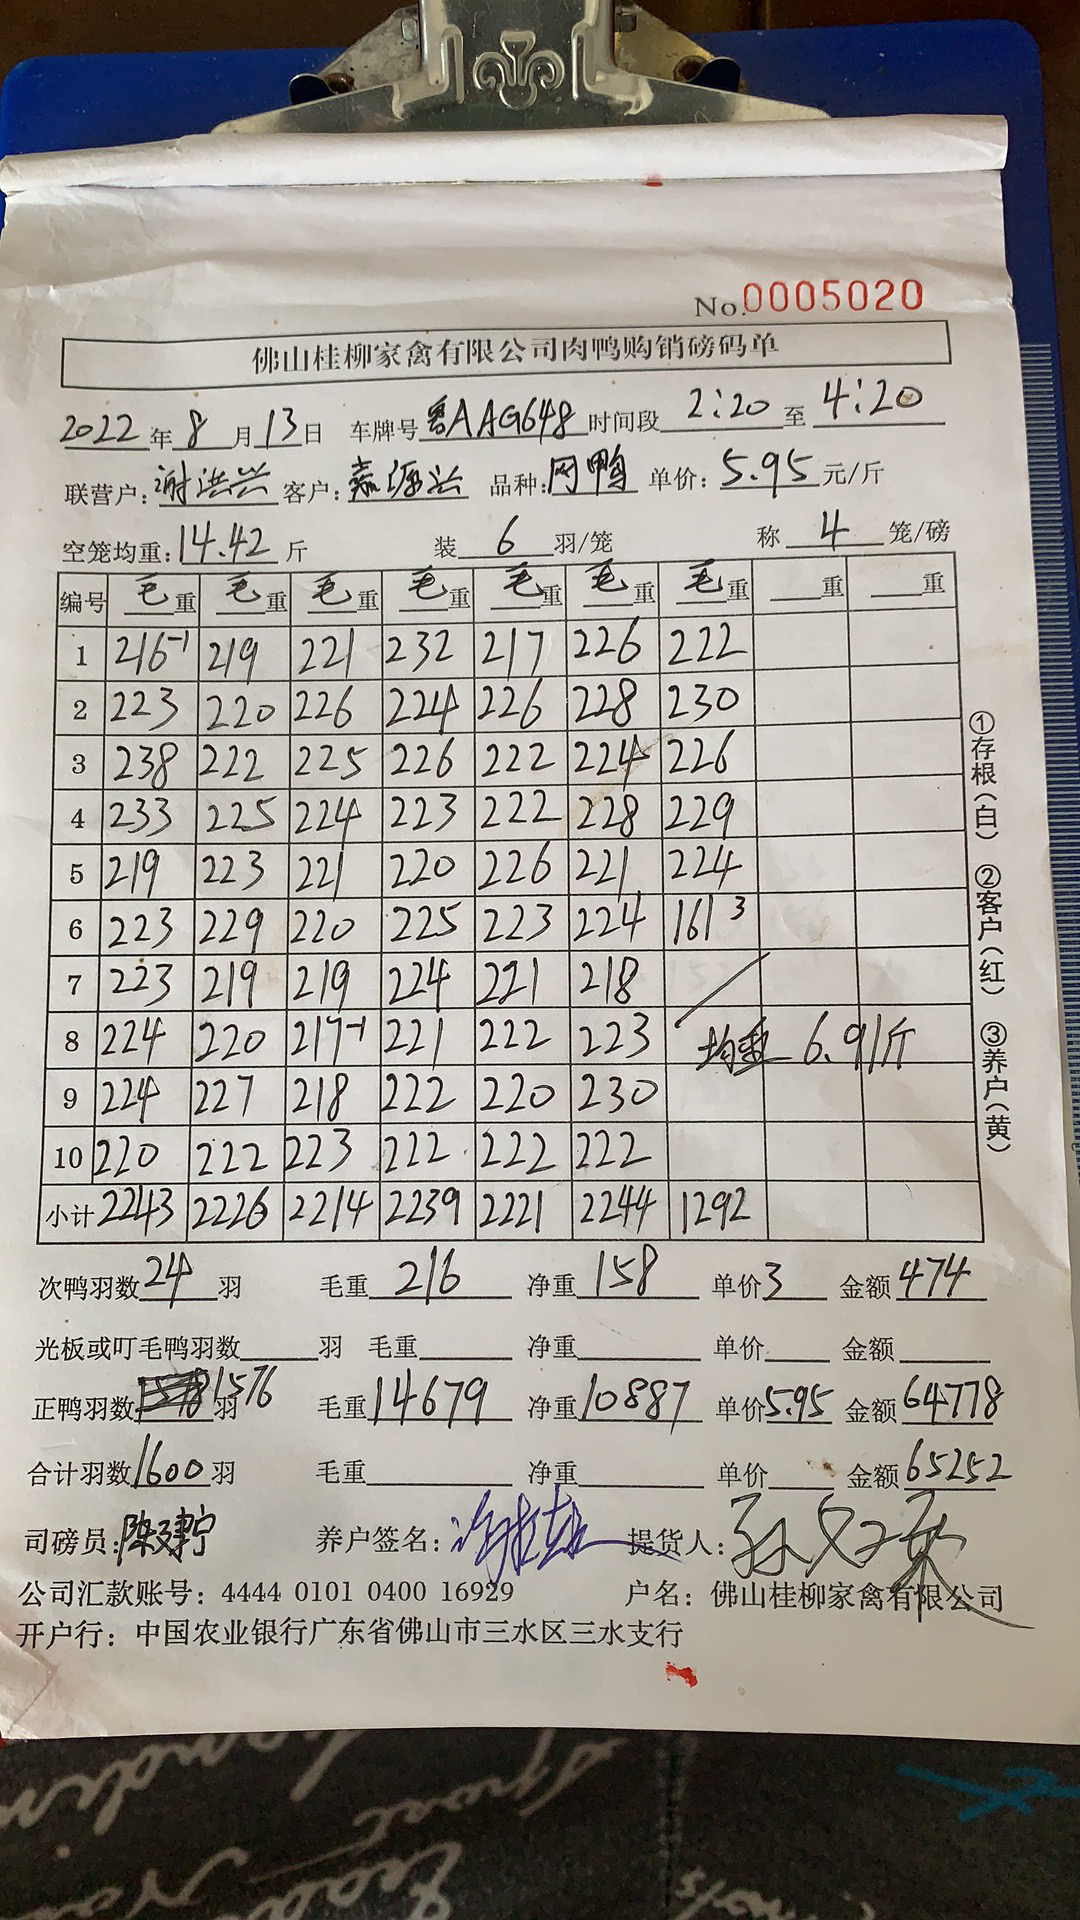 No.0005020
佛山桂柳家禽有限公司肉鸭购销磅码单
2022年8月13日 车牌号粤AAG648时间段2:20至4:20
联营户:谢洪兴 客户:嘉源兴 品种:网鸭 单价:5.95元/斤
空笼均重:14.42斤 装6羽/笼 称4笼/磅
编号 毛重 毛重 毛重 毛重 毛重 毛重 毛重 重 重
1 216-1 219 221 232 217 226 222
2 223 220 226 224 226 228 230
3 238 222 225 226 222 224 226
4 233 225 224 223 222 228 229
5 219 223 221 220 226 221 224
6 223 229 220 225 223 224 161 3
7 223 219 219 224 221 218
8 224 220 217-1 221 222 223 均重 6.91斤
9 224 227 218 222 220 230
10 220 222 223 222 222 222
小计 2243 2226 2214 2239 2221 2244 1292
①存根(白) ②客户(红) ③养户(黄)
次鸭羽数24羽 毛重216 净重158 单价3 金额474
光板或叮毛鸭羽数 羽 毛重 净重 单价 金额
正鸭羽数 羽1576 毛重14679 净重10887 单价5.95 金额64778
合计羽数1600羽 毛重 净重 单价 金额65252
司磅员: 养户签名: 提货人:
公司汇款账号:4444 0101 0400 16929 户名:佛山桂柳家禽有限公司
开户行:中国农业银行广东省佛山市三水区三水支行